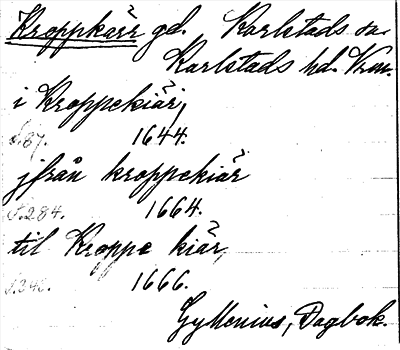 Kroppkärr gd. Karlstads sn.
Karlstads hd. Vrml.
i Kroppekiär,
s. 87. 1644.
jfrån kroppekiär
s. 284. 1664.
til Kroppe kiär,
1666.
Gyllenius, Dagbok.